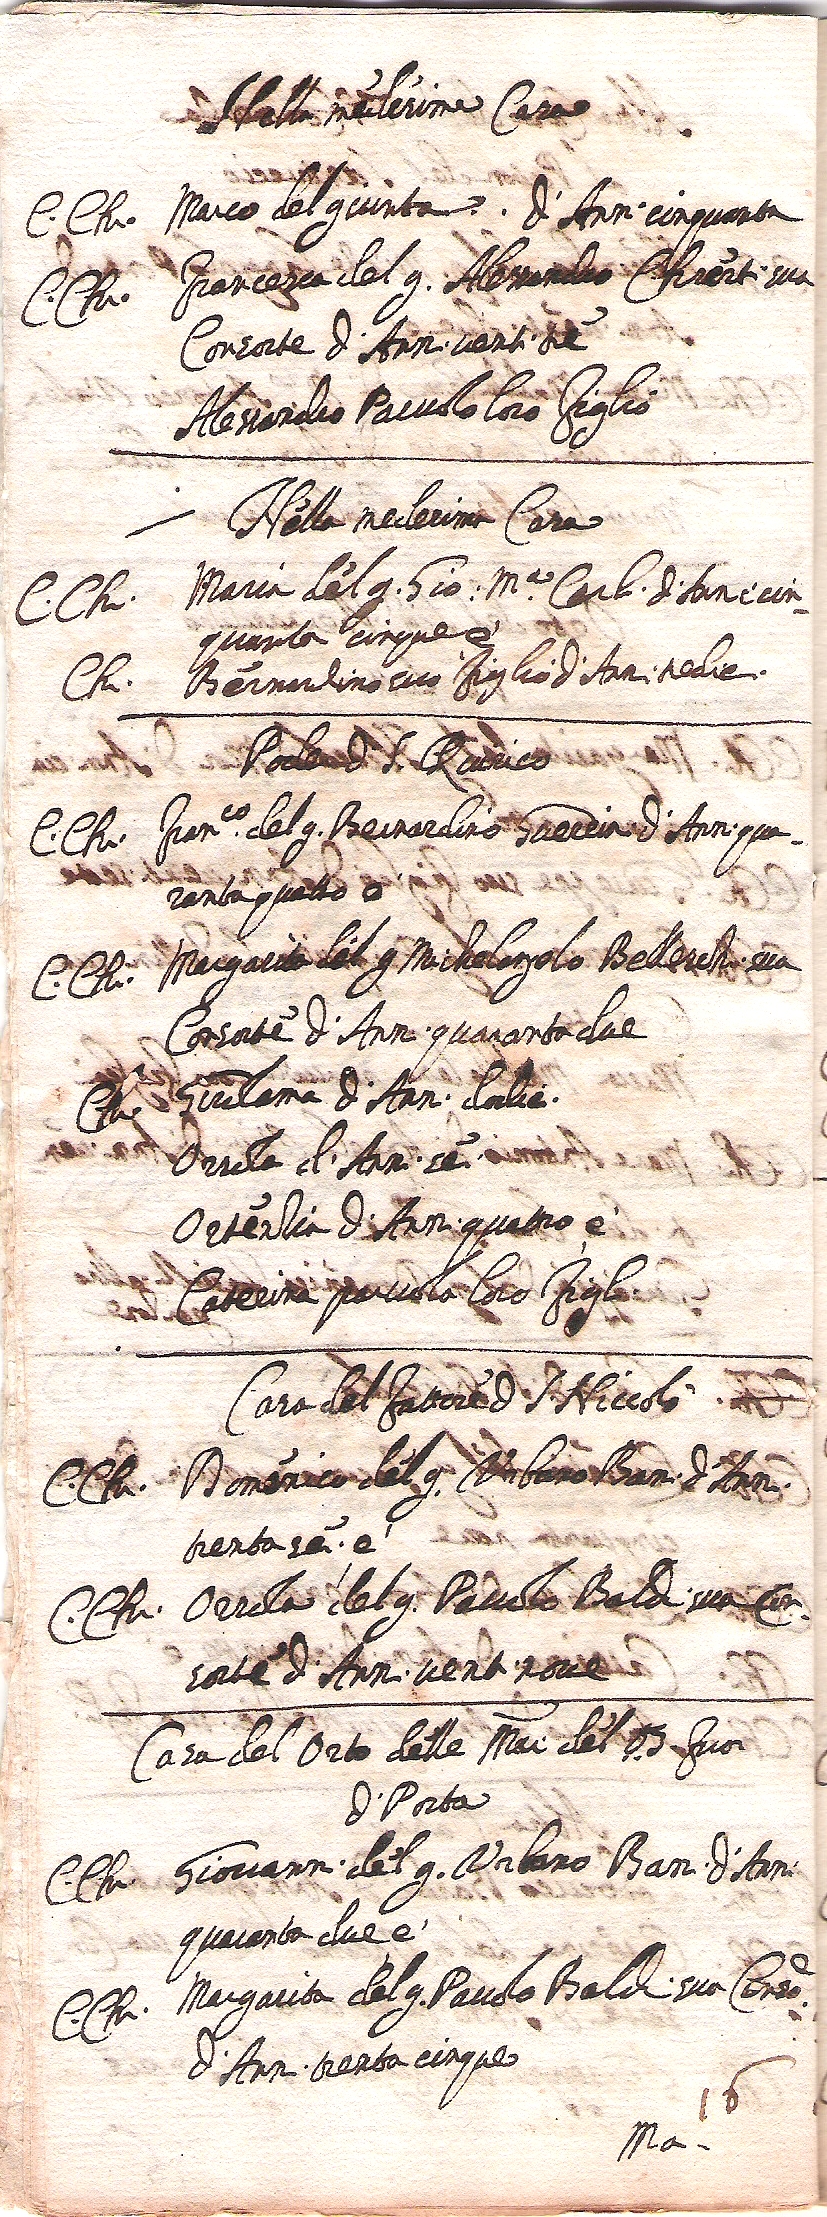 Nella medesima Casa
C. Ch. Marco del giunta . d' Ann. cinquanta
C. Ch. Francesca del q. Alessandro sua
Consorte d' Ann. venti tre
Alessandro Paccolo loro figlio
Nella medesima Casa
C. Ch. Maria del q. Gio: M.a d' Ann. cin-
quanta cinque e
Ch. Bernardino suo figlio d' Ann. sedie.
Podere d S. Quirico
C. Ch. Fran.co del q. Bernardino Guerrin d' Ann. qua-
ranta quatro e
C. Ch. Margarita del q Michelangolo sua
Consorte d' Ann. quaranta due
Ch. Girolama d' Ann. dodic.
Orsola d' Ann. sei.
Ortenlia d' Ann. quatro e
Caterina paccola loro figli.
Casa del fattore d S Niccolò
C. Ch. Domenico del q. Urbano Ban. d' Ann.
trenta sei. e
C. Ch. Orsola del q. Paccolo Baldi sua Con-
sorte d' Ann. vent. nove
Casa del Orto delle del fuor
d' Porta
C. Ch. Giovann. del q. Urbano Ban. d' Ann.
quaranta due e
C. Ch. Margarita del q. Paccolo Baldi sua Conso.e
d' Ann. trenta cinque
16
Ma-